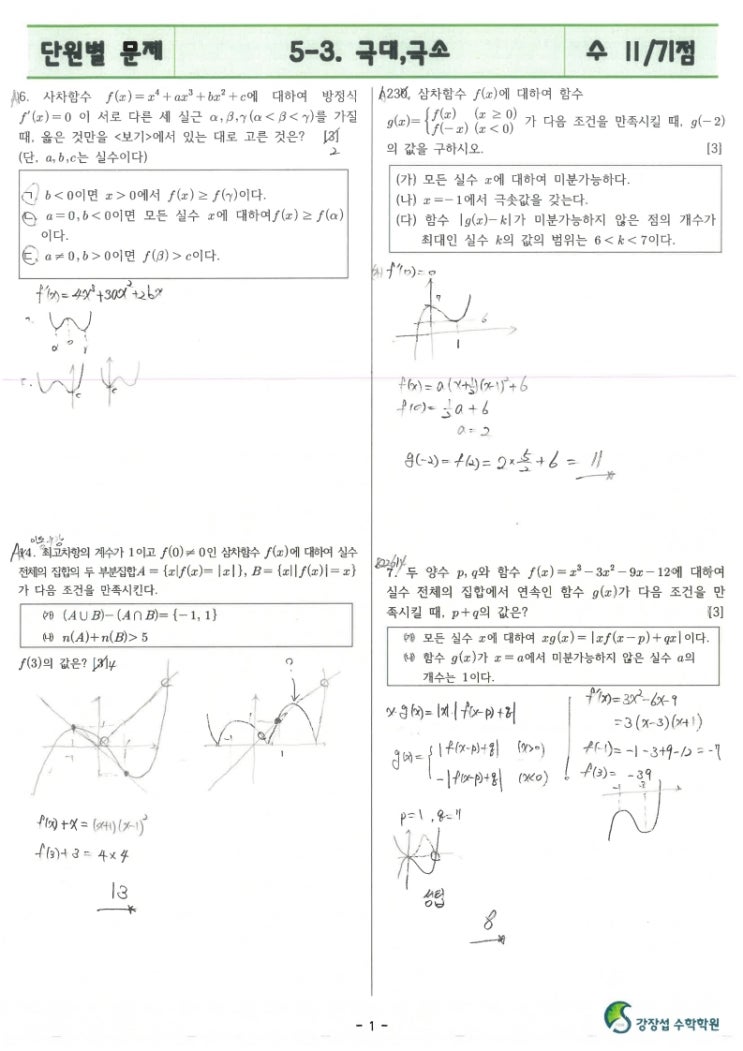 단원별 문제
5-3. 극대,극소
수 II/기점
A16. 사차함수 f(x)=x⁴+ax³+bx²+c에 대하여 방정식
f′(x)=0 이 서로 다른 세 실근 α,β,γ(α<β<γ)를 가질
때, 옳은 것만을 <보기>에서 있는 대로 고른 것은? [3]
2
(단, a,b,c는 실수이다)
ㄱ. b<0이면 x>0에서 f(x)≥f(γ)이다.
ㄴ. a=0,b<0이면 모든 실수 x에 대하여f(x)≥f(α)
이다.
ㄷ. a≠0,b>0이면 f(β)>c이다.
f′(x)=4x³+3ax²+2bx
α 0 γ
ㄷ.
c c
14. 최고차항의 계수가 1이고 f(0)≠0인 삼차함수 f(x)에 대하여 실수
전체의 집합의 두 부분집합A={x|f(x)=|x|}, B={x||f(x)|=x}
가 다음 조건을 만족시킨다.
㈎ (A∪B)-(A∩B)={-1, 1}
㈏ n(A)+n(B)>5
f(3)의 값은? [3]4
-1 1
?
-1 1
f(x)+x=(x+1)(x-1)²
f(3)+3=4×4
13
A230. 삼차함수 f(x)에 대하여 함수
g(x)={f(x) (x≥0)
f(-x) (x<0) 가 다음 조건을 만족시킬 때, g(-2)
의 값을 구하시오. [3]
(가) 모든 실수 x에 대하여 미분가능하다.
(나) x=-1에서 극솟값을 갖는다.
(다) 함수 |g(x)-k|가 미분가능하지 않은 점의 개수가
최대인 실수 k의 값의 범위는 6<k<7이다.
(가) f′(0)=0
7
6
1
f(x)=a(x+½)(x-1)²+6
f(0)=½a+6
a=2
g(-2)=f(2)=2×5/2+6=11
7. 두 양수 p,q와 함수 f(x)=x³-3x²-9x-12에 대하여
실수 전체의 집합에서 연속인 함수 g(x)가 다음 조건을 만
족시킬 때, p+q의 값은? [3]
㈎ 모든 실수 x에 대하여 xg(x)=|xf(x-p)+qx|이다.
㈏ 함수 g(x)가 x=a에서 미분가능하지 않은 실수 a의
개수는 1이다.
x·g(x)=|x|·|f(x-p)+q|
g(x)={|f(x-p)+q| (x>0)
-|f(x-p)+q| (x<0)
p=1, q=7
성립
8
f′(x)=3x²-6x-9
=3(x-3)(x+1)
f(-1)=-1-3+9-12=-7
f(3)=-39
-1 3
- 1 -
강장섭 수학학원